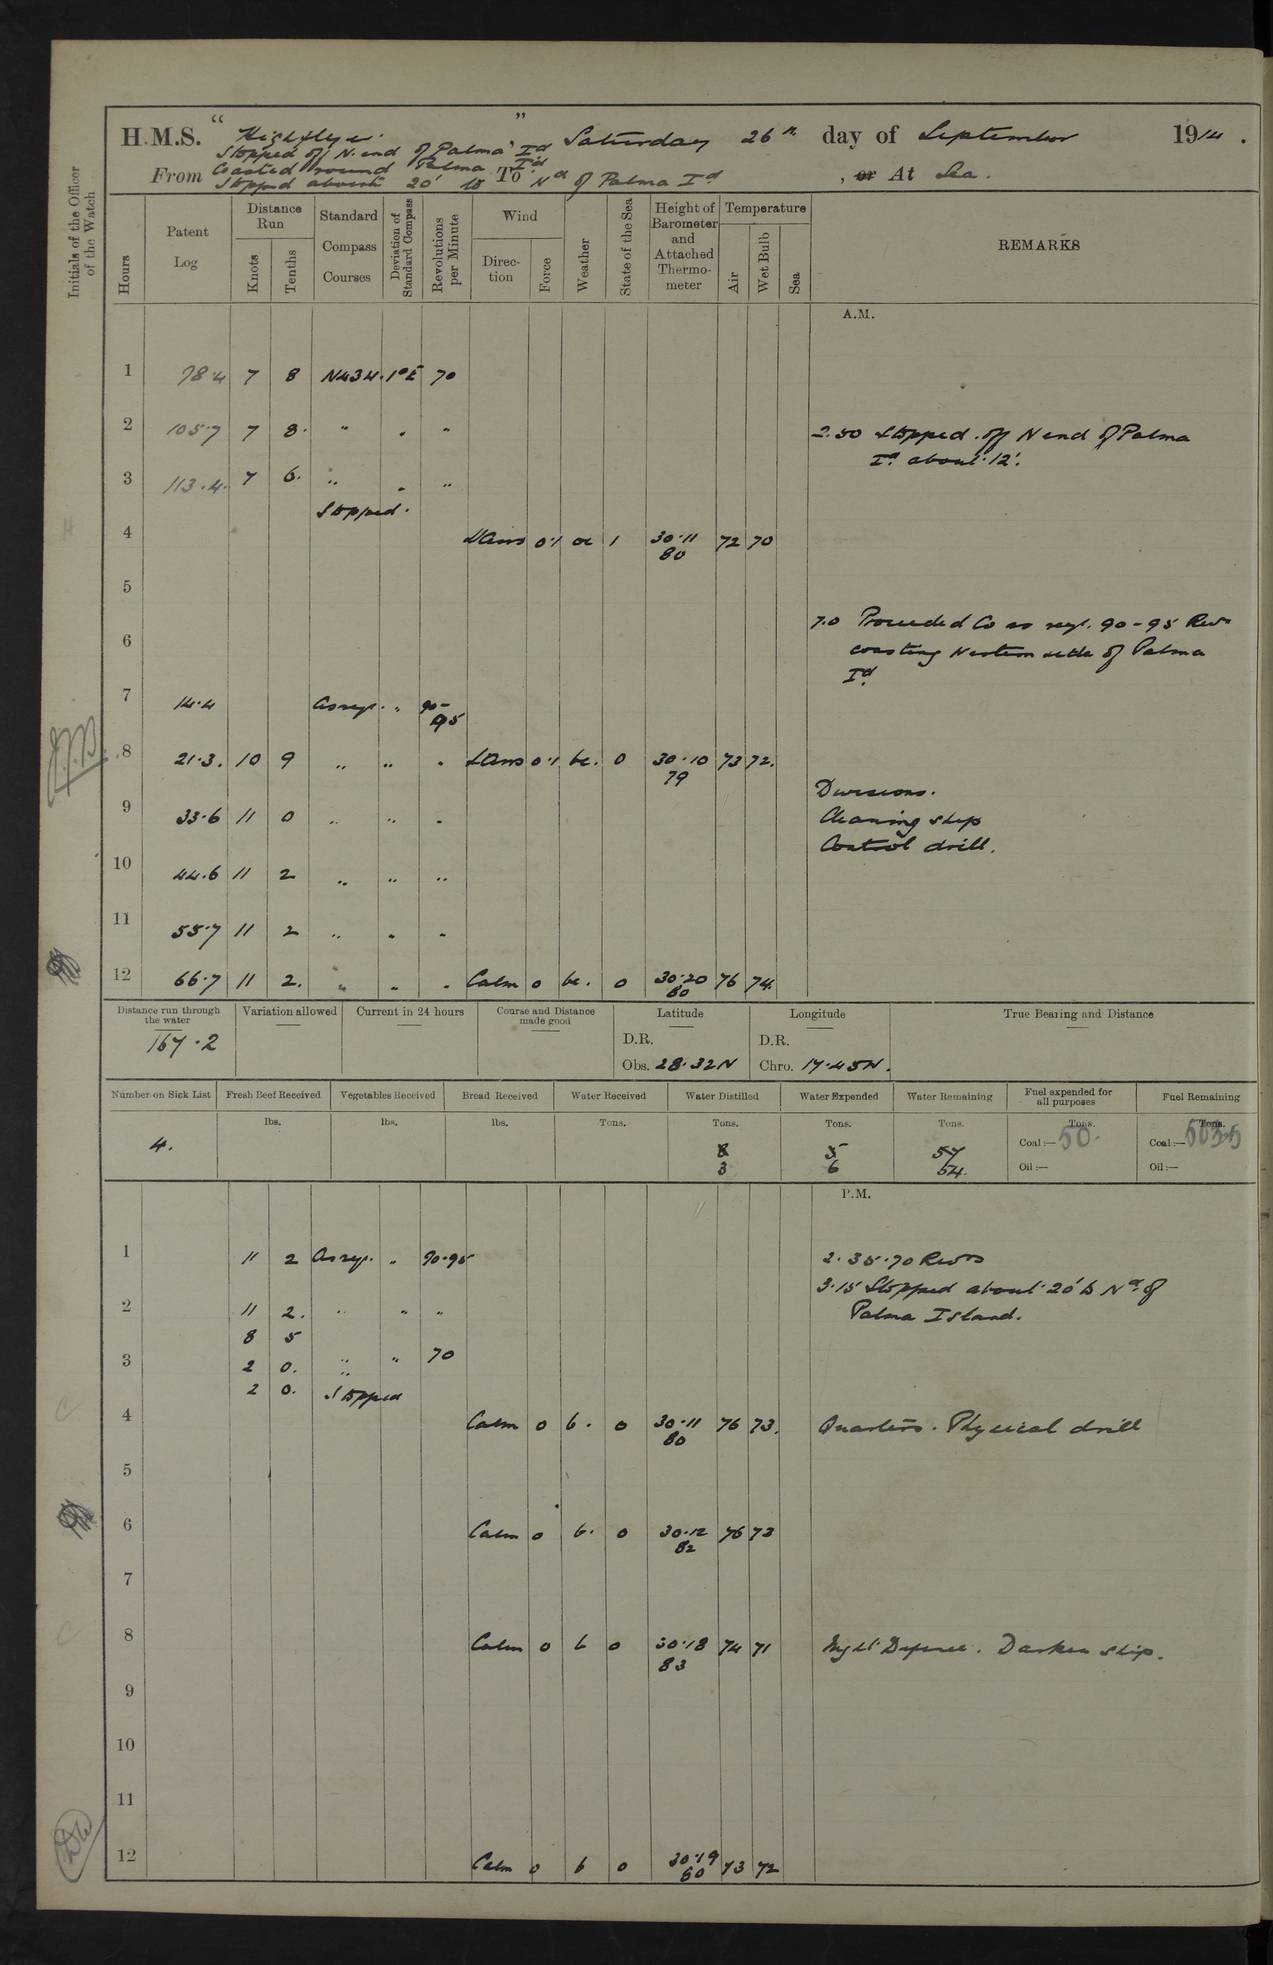 H.M.S. " Highflyer " Saturday 26th day of September 1914.
Stopped off N. end of Palma Id
Coasted round Palma Id
From Stopped about 20' to Nd of Palma Id To , or At Sea.
Initials of the Officer of the Watch
Hours Patent Log Distance Run Knots Tenths Standard Compass Courses Deviation of Standard Compass Revolutions per Minute Wind Direction Force Weather State of the Sea Height of Barometer and Attached Thermometer Temperature Air Wet Bulb Sea REMARKS
A.M.
1 78.4 7 8 N43W. 1°E 70
2 105.7 7 8. " " "
2.50 Stopped off N end of Palma
Id. about 12'.
3 113.4. 7 6. " " "
Stopped.
4 0.1 1 30.11 72 70
80
5
7.0 Proceeded Co as req. 90-95 Revs
6
coasting Western side of Palma
Id.
7 14.4 As req. " 90-
95
8 21.3. 10 9 " " " 0.1 bc. 0 30.10 73 72.
79
Divisions.
9 33.6 11 0 " " "
Cleaning ship
Control drill.
10 44.6 11 2 " " "
11 55.7 11 2 " " "
12 66.7 11 2. " " " Calm 0 bc. 0 30.20 76 74.
80
Distance run through the water Variation allowed Current in 24 hours Course and Distance made good Latitude Longitude True Bearing and Distance
167.2
D.R. D.R.
Obs. 28.32N Chro. 17.45W.
Number on Sick List Fresh Beef Received Vegetables Received Bread Received Water Received Water Distilled Water Expended Water Remaining Fuel expended for all purposes Fuel Remaining
lbs. lbs. lbs. Tons. Tons. Tons. Tons. Tons. Tons.
4. 8 5 57 Coal:— 50. Coal:— 5035
3 6 54. Oil:— Oil:—
P.M.
1 11 2 As req. " 90.95
2.35.70 Revs
3.15 Stopped about 20' to Nd of
2 11 2. " " "
Palma Island.
8 5
3 2 0. " " 70
2 0. Stopped
4 Calm 0 b. 0 30.11 76 73. Quarters. Physical drill
80
5
6 Calm 0 b. 0 30.12 76 73
82
7
8 Calm 0 b 0 30.18 74 71 Night Defence. Darken ship.
83
9
10
11
12 Calm 0 b 0 30.19 73 72
80